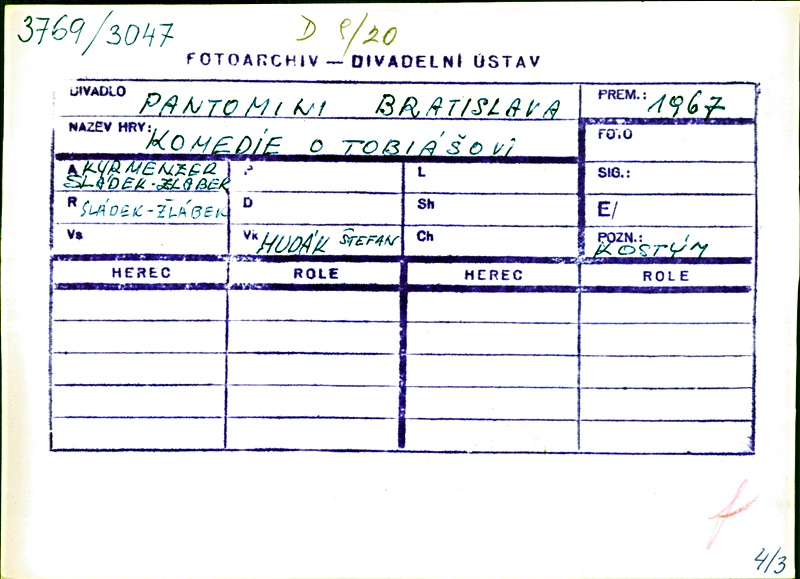 3769/3047
D P/20
FOTOARCHIV — DIVADELNÍ ÚSTAV
DIVADLO PANTOMIMI BRATISLAVA
PREM.: 1967
NÁZEV HRY: KOMEDIE O TOBIÁŠOVI
FOTO
A KYRMENZER
SLÁDEK-ŽLÁBEK
P
L
SIG.:
R SLÁDEK-ŽLÁBEK
D
Sh
E/
Vs
Vk HUDÁK ŠTEFAN
Ch
POZN.:
KOSTÝM
HEREC ROLE HEREC ROLE
4/3